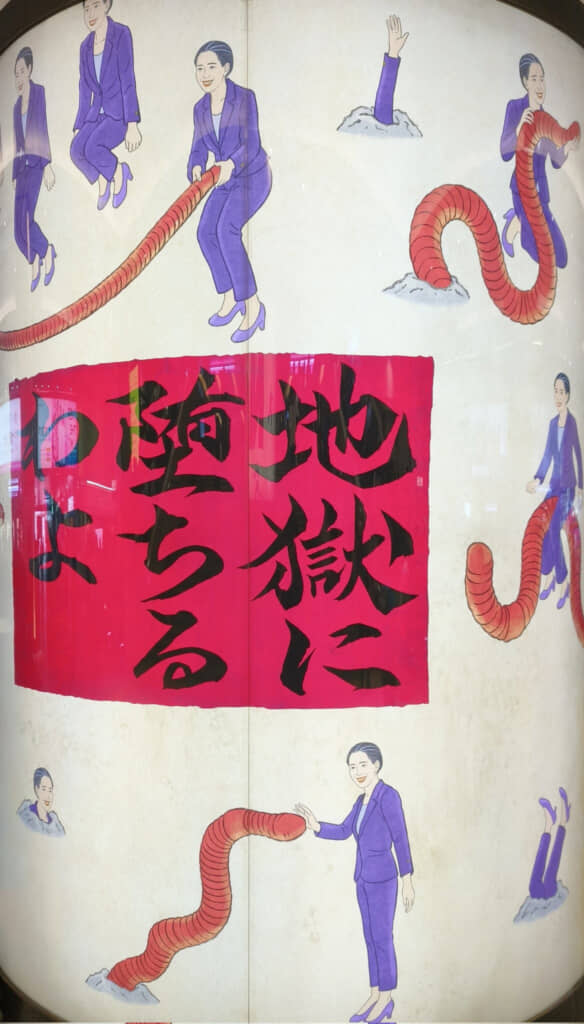 地獄に
堕ちる
わよ